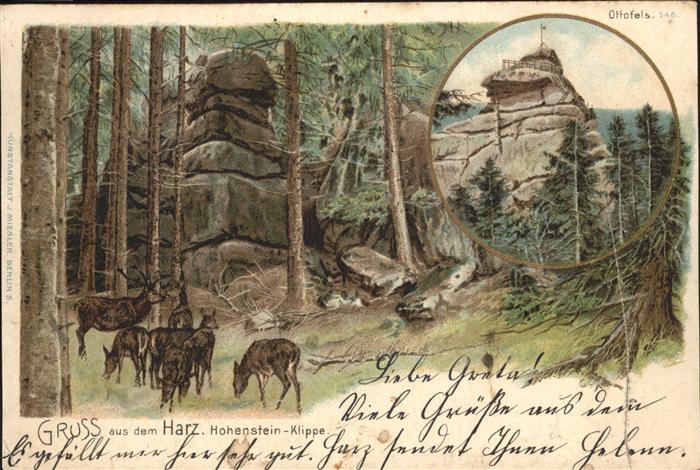 Ottofels. 546.
KUNSTANSTALT J. MIESLER, BERLIN S.
GRUSS aus dem Harz. Hohenstein-Klippe.
Liebe Greta!
Viele Grüße aus dem
Harz sendet Ihnen Helene.
Es gefällt mir hier sehr gut.